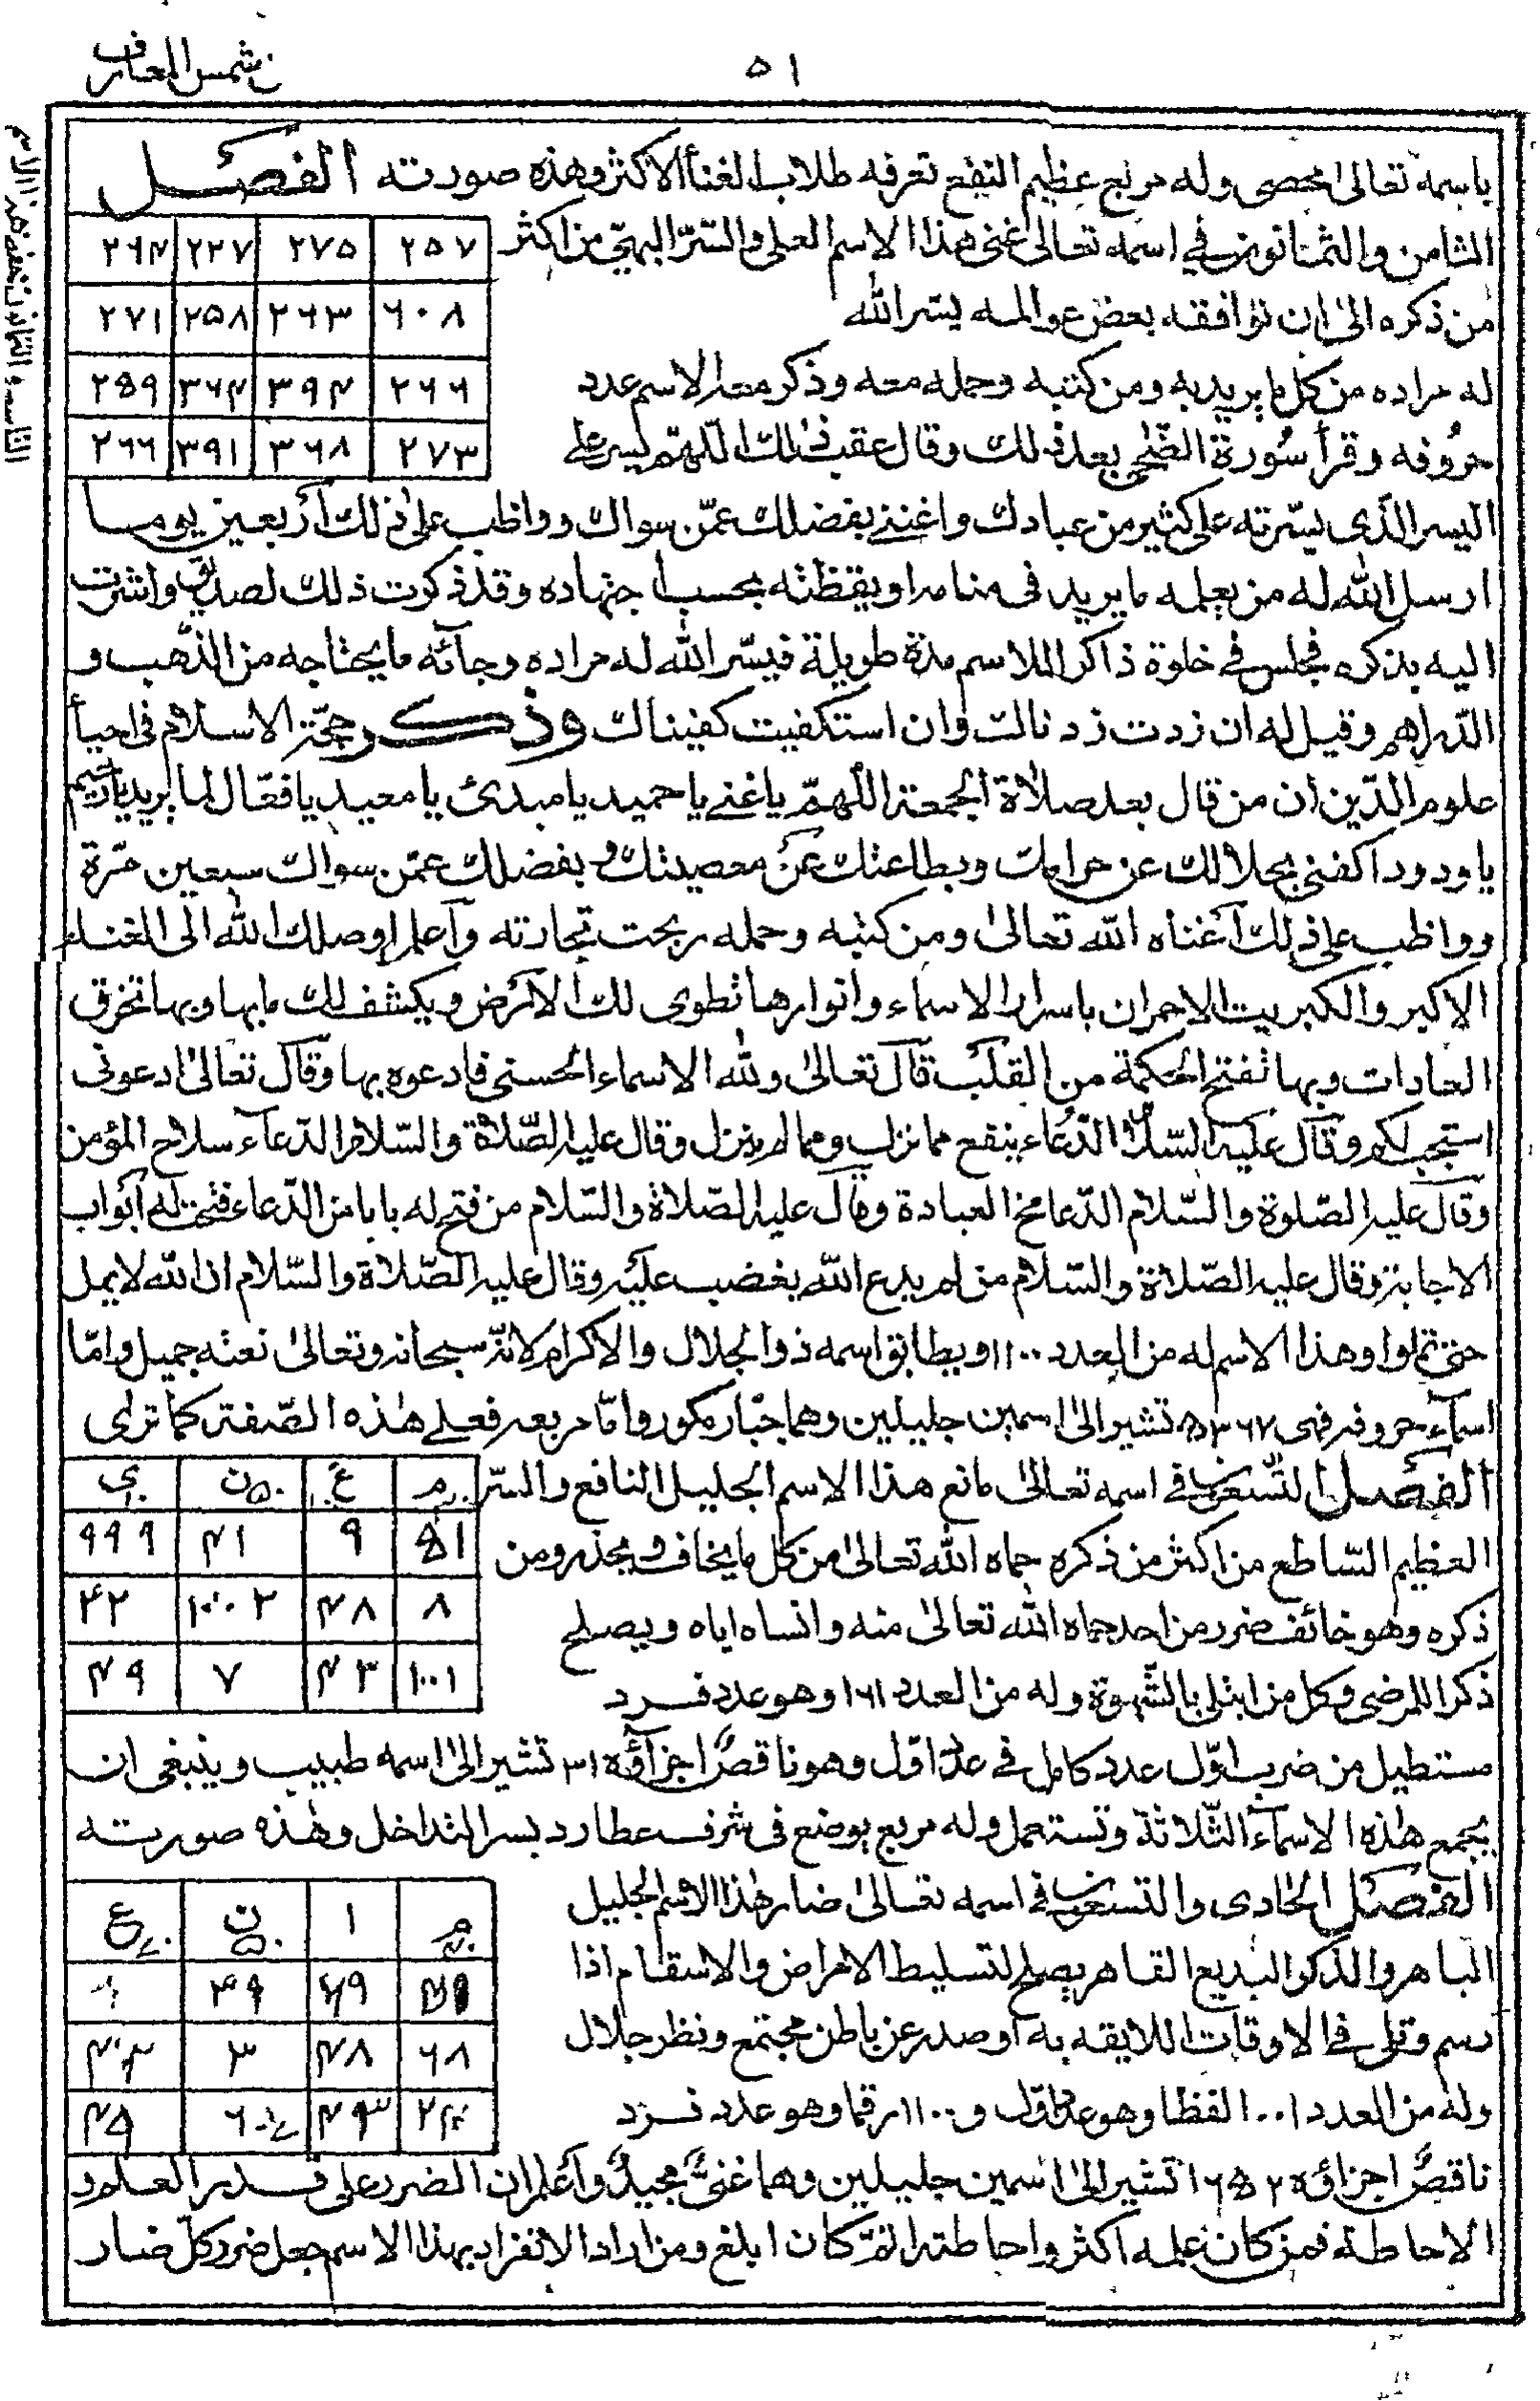 شمس المعارف
٥١
باسمه تعالى محصى وله مربع عظيم النفع تعرفه طلاب الغنأ الاكثر وهذه صورته الفصل
الثامن والثمانون في اسمه تعالى غنى هذا الاسم العلى والسّرّ البهىّ من اكثر
من ذكره الى ان توافقه بعض عوالمه يسّر الله
له مراده من كل ما يريد به ومن كتبه وحمله معه وذكر معه الاسم عدد
حروفه وقرأ سورة الضّحى بعد ذلك وقال عقب ذلك اللهّم يسر على
٢٥٧ ٢٧٥ ٢٢٧ ٢٦٤
٦٠٨ ٢٦٣ ٢٥٨ ٢٧١
٢٦٦ ٣٩٤ ٣٦٤ ٢٥٩
٢٧٣ ٣٦٨ ٣٩١ ٢٦٦
اليسر الذى يسّرته على كثير من عبادك واغننى بفضلك عمّن سواك وواظب على ذلك أربعين يوما
ارسل الله له من يعلمه ما يريد فى منامه او يقظته بحسب اجتهاده وقد ذكرت ذلك لصديق واشرت
اليه بذكره فجلس فى خلوة ذاكرا للاسم مدة طويلة فيسّر الله له مراده وجائه ما يحتاجه من الذّهب و
الدّراهم وقيل له ان زدت زدناك وان استكفيت كفيناك وذكر حجّة الاسلام فى احيأ
علوم الدّين ان من قال بعد صلاة الجمعة اللّهمّ يا غنى يا حميد يا مبدئ يا معيد يا فعّال لما يريد يا رحيم
يا ودود اكفنى بحلالك عن حرامك وبطاعتك عن معصيتك وبفضلك عمّن سواك سبعين مرّة
وواظب على ذلك أغناه الله تعالى ومن كتبه وحمله ربحت تجارته وأعلم اوصلك الله الى الغناء
الاكبر والكبريت الاحمر ان باسرار الاسماء وانوارها تطوى لك الأرض ويكشف لك ما بها وبها تخرق
العادات وبها تفتح الحكمة من القلب قال تعالى ولله الاسماء الحسنى فادعوه بها وقال تعالى ادعونى
استجب لكم وقال عليه السّلام الدّعاء ينفع مما نزل ومما لم ينزل وقال عليه الصّلاة والسّلام الدّعاء سلاح المؤمن
وقال عليه الصّلوة والسّلام الدّعا مخ العبادة وقال عليه الصّلاة والسّلام من فتح له بابا من الدّعاء فتحت له أبواب
الاجابة وقال عليه الصّلاة والسّلام من لم يدع الله يغضب عليه وقال عليه الصّلاة والسّلام ان الله لا يمل
حتى تملوا وهذا الاسم له من العدد ١١٠٠ ويطابق اسمه ذو الجلال والاكرام لانّه سبحانه وتعالى نعته جميل وامّا
اسمآء حروفه فهى ٥٣٦٧ تشير الى اسمين جليلين وهما جبّار مكور وامّا مربعه فعلى هذه الصّفة كما ترى
الفصل التّسعون فى اسمه تعالى مانع هذا الاسم الجليل النافع والسّر
العظيم السّاطع من اكثر من ذكره حماه الله تعالى من كل ما يخاف ويحذر ومن
ذكره وهو خائف ضرر من احد حماه الله تعالى منه وانساه اياه ويصلح
ذكرا للمرضى وكل من ابتلى بالشّهوة وله من العدد ١٦١ وهو عدد فرد
م غ ن ى
٥١ ٩ ٤١ ٩٩٩
٨ ٤٨ ١٠٠٢ ٤٢
١٠٠١ ٤٣ ٧ ٤٩
مستطيل من ضرب اوّل عدد كامل فى عدد اوّل وهو ناقص اجزآؤه ٣١ تشير الى اسمه طبيب وينبغى ان
يجمع هذه الاسمآء الثّلاثة وتستعمل وله مربع يوضع فى شرف عطارد بسر التداخل وهذه صورته
الفصل الحادى والتسعون فى اسمه تعالى ضار هذا الاسم الجليل
الباهر والذكر البديع القاهر يصلح لتسليط الامراض والاسقام اذا
رسم وتلى فى الاوقات اللايقه به أو صدر عن باطن مجتمع ونظر جلال
وله من العدد ١٠٠١ لفظا وهو عدد اول و١١٠٠ رقما وهو عدد فرد
م ا ن ع
٦٩ ٤٩
٦٨ ٤٨ ٣
٤٣ ٤٥
ناقص اجزاؤه ١٦٥٢ تشير الى اسمين جليلين وهما غنىّ مجيدٌ وأعلم ان الضرر على قدر العلم و
الاحاطة فمن كان علمه اكثر واحاطته اتمّ كان ابلغ ومن اراد الانفراد بهذا الاسم جعل ضرر كلّ ضار